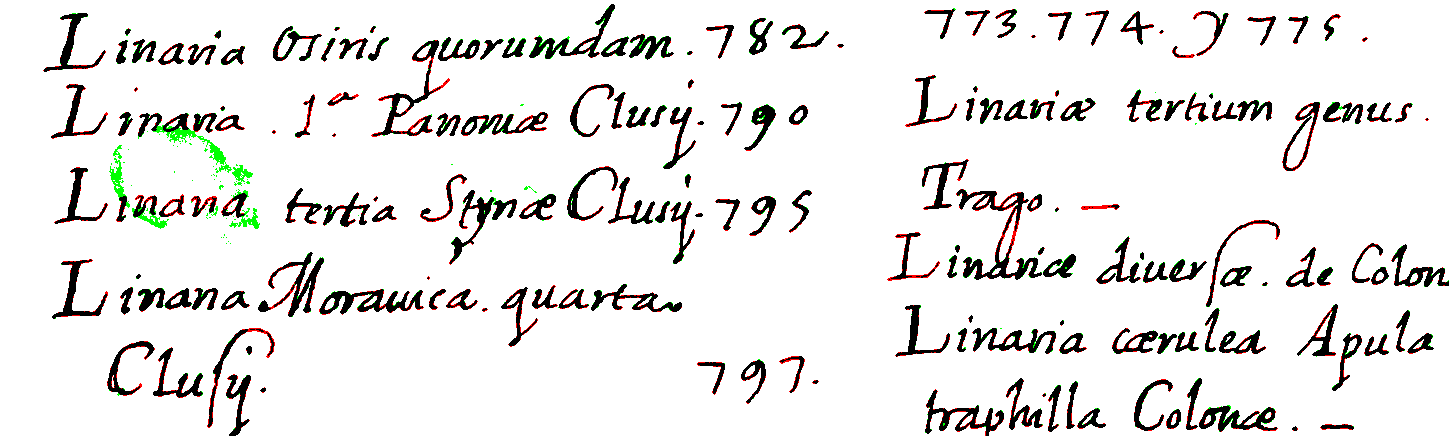 Linaria Osiris quorumdam. 782.
Linaria. 1.ª Panoniæ Clusij. 790
Linaria tertia Styriæ Clusij. 795
Linaria Morauica. quarta
Cluſij. 797.
773. 774. y 775.
Linariæ tertium genus.
Trago. —
Linariæ diuerſæ. de Colon
Linaria cærulea Apula
traphilla Colonæ. —